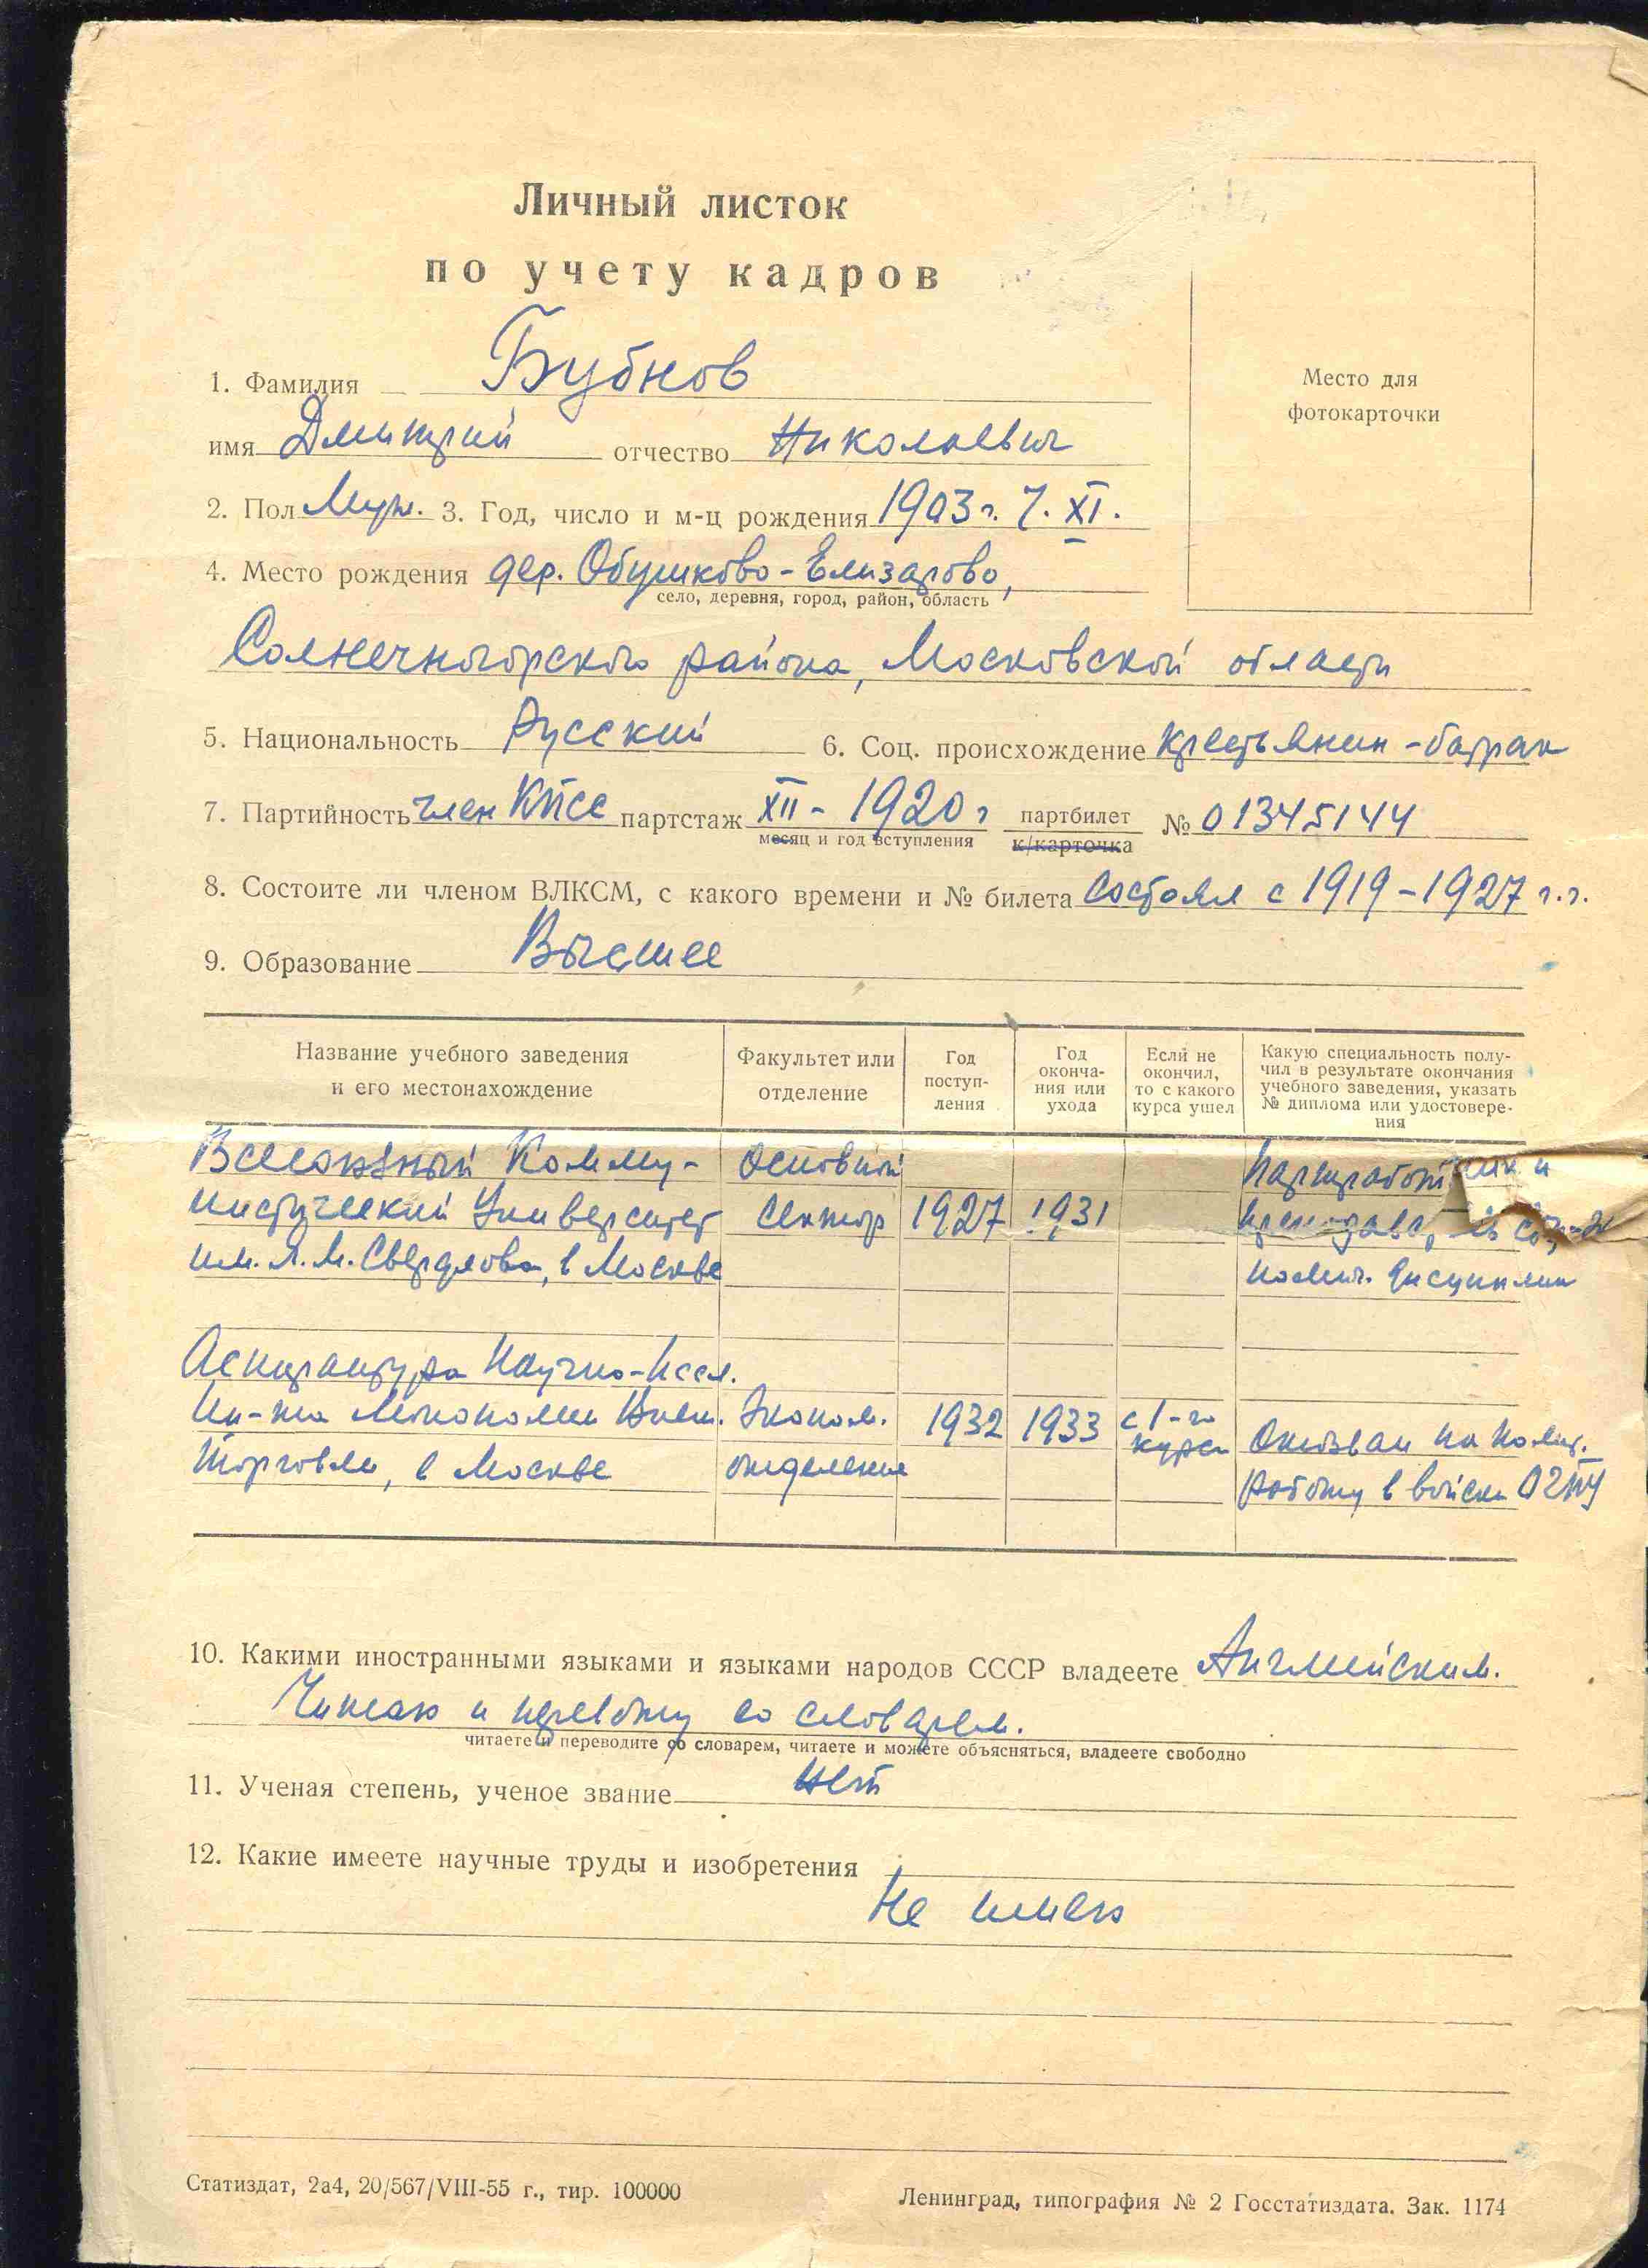 Личный листок
по учету кадров
Место для
фотокарточки
1. Фамилия Бубнов
имя Дмитрий отчество Николаевич
2. Пол Муж. 3. Год, число и м-ц рождения 1903 г. 7. XI.
4. Место рождения дер. Обушково-Елизарово,
село, деревня, город, район, область
Солнечногорского района, Московской области
5. Национальность Русский 6. Соц. происхождение крестьянин-батрак
7. Партийность член КПСС партстаж XII - 1920 г партбилет № 01345144
месяц и год вступления к/карточка
8. Состоите ли членом ВЛКСМ, с какого времени и № билета Состоял с 1919-1927 г.г.
9. Образование Высшее
Название учебного заведения
и его местонахождение
Факультет или
отделение
Год
поступ-
ления
Год
оконча-
ния или
ухода
Если не
окончил,
то с какого
курса ушел
Какую специальность полу-
чил в результате окончания
учебного заведения, указать
№ диплома или удостовере-
ния
Всесоюзный Комму- Основной Партработник и
нистический Университет Сектор 1927 1931
им. Я. М. Свердлова, в Москве полит. дисциплин
Аспирантура Научно-Иссл.
Ин-та Монополии Внеш. Эконом. 1932 1933 с 1-го курса Отозван на полит.
Торговли, в Москве отделение работу в войска ОГПУ
10. Какими иностранными языками и языками народов СССР владеете Английским.
Читаю и перевожу со словарем.
читаете и переводите со словарем, читаете и можете объясняться, владеете свободно
11. Ученая степень, ученое звание Нет
12. Какие имеете научные труды и изобретения
Не имею
Статиздат, 2а4, 20/567/VIII-55 г., тир. 100000
Ленинград, типография № 2 Госстатиздата. Зак. 1174